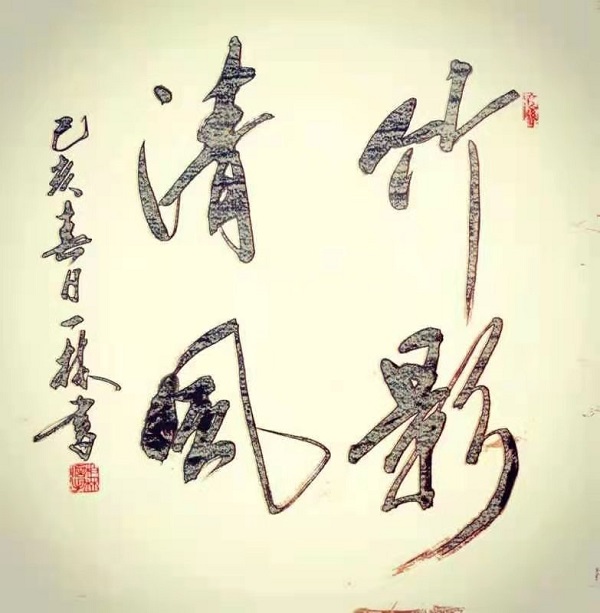 竹影
清风
己亥春日一林书